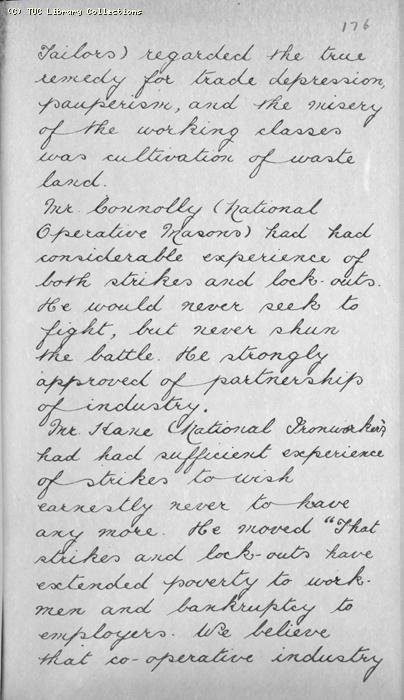 (C) TUC Library Collections
176
Tailors) regarded the true
remedy for trade depression,
pauperism, and the misery
of the working classes
was cultivation of waste
land.
Mr. Connolly (National
Operative Masons) had had
considerable experience of
both strikes and lock-outs.
He would never seek to
fight, but never shun
the battle. He strongly
approved of partnership
of industry.
Mr. Kane (National Ironworkers)
had had sufficient experience
of strikes to wish
earnestly never to have
any more. He moved "That
strikes and lock-outs have
extended poverty to work-
men and bankruptcy to
employers. We believe
that co-operative industry